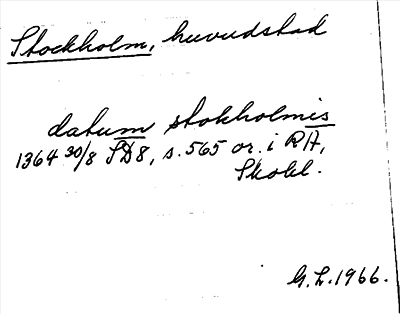 Stockholm, huvudstad
datum stokholmis
1364 30/8 SD8, s. 565 or. i RA,
Skokl.
G. L. 1966.